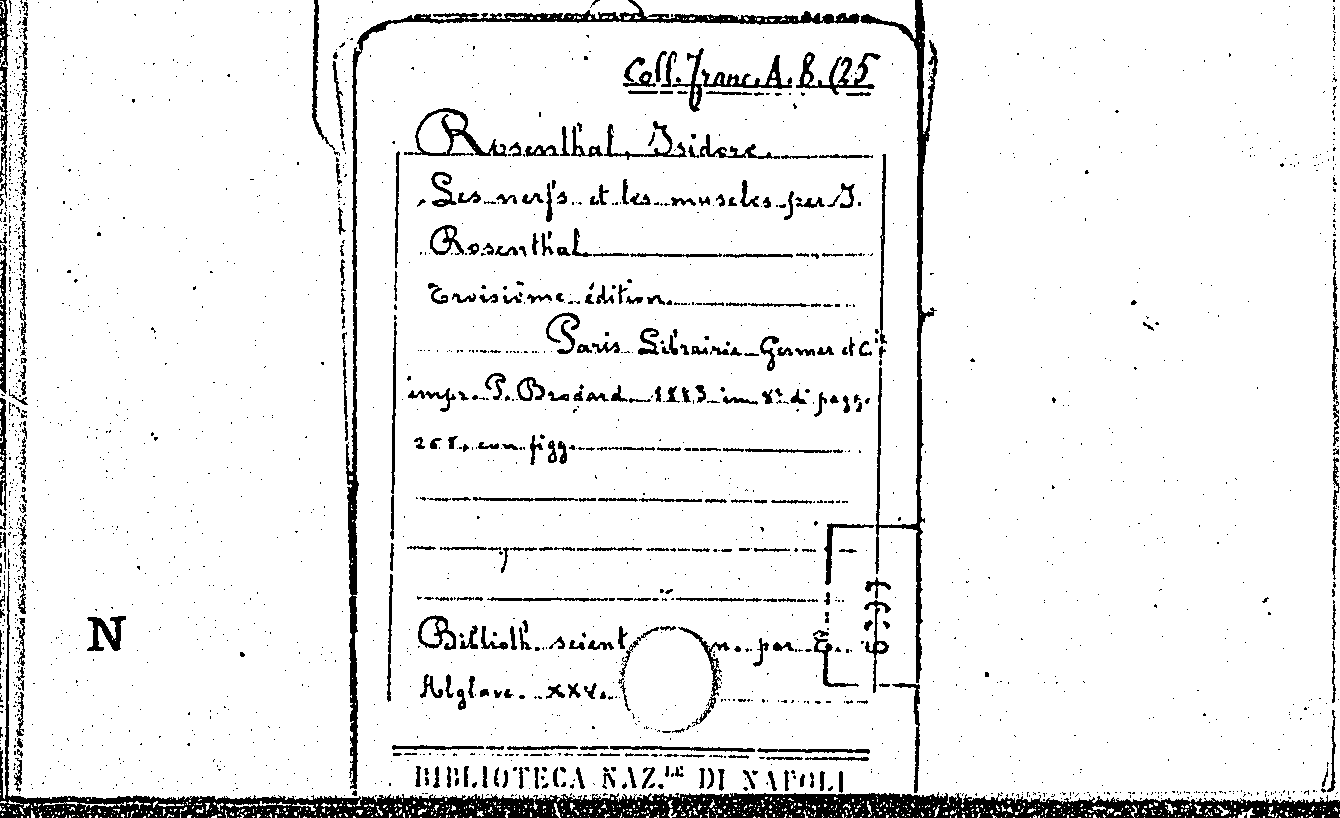 Coll. Franc. A. 8. (25
Rosenthal, Isidore.
Les nerfs et les muscles par J.
Rosenthal
Troisième édition.
Paris Librairie Germer et C.ie
impr. P. Brodard 1883 in 8° di pagg.
258, con figg.
Biblioth. scient n. par E.
Alglave. XXV.
N
BIBLIOTECA NAZ.LE DI NAPOLI